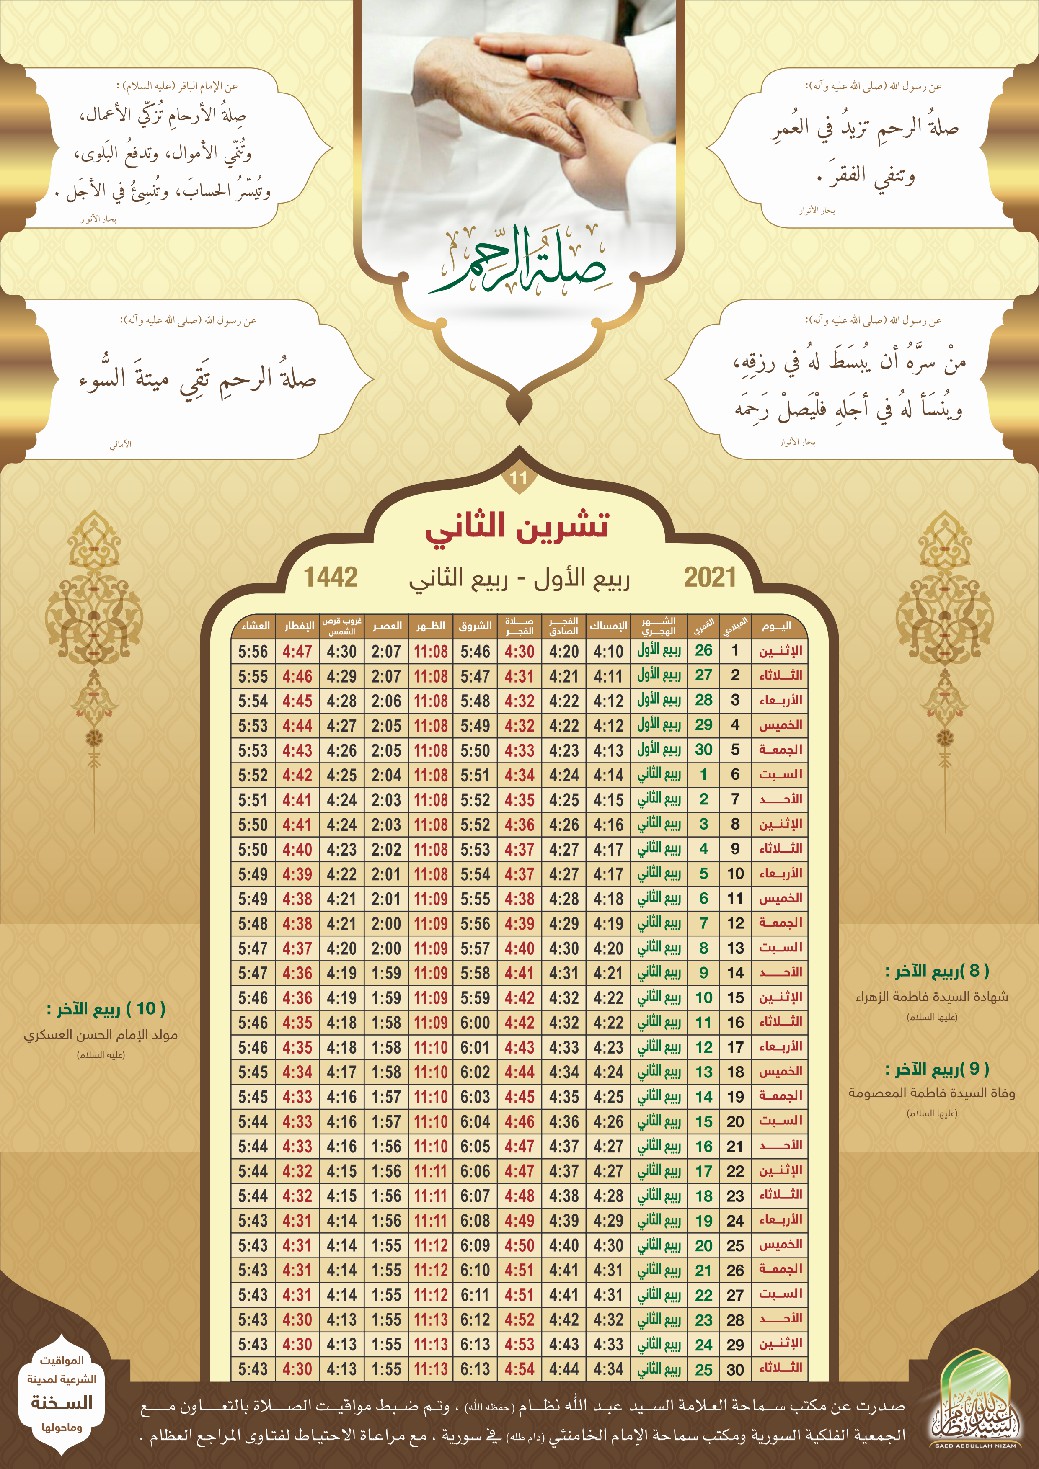 عن رسول الله (صلى الله عليه وآله):
صلةُ الرحمِ تزيدُ في العُمرِ
وتنفي الفقرَ .
بحار الأنوار
عن الإمام الباقر (عليه السلام) :
صِلةُ الأرحامِ تُزكّي الأعمال،
وتُنمّي الأموال، وتدفعُ البَلوى،
وتُيسّرُ الحسابَ، وتُنسِئُ في الأجَل .
بحار الأنوار
صِلَةُ الرَّحِم
عن رسول الله (صلى الله عليه وآله):
منْ سرَّهُ أن يُبسَطَ لهُ في رزقِهِ،
ويُنسَأ لهُ في أجَلهِ فلْيَصلْ رَحِمَه
بحار الأنوار
عن رسول الله (صلى الله عليه وآله):
صلةُ الرحمِ تَقِي ميتةَ السُّوء
الأمالي
11
تشرين الثاني
2021 ربيع الأول - ربيع الثاني 1442
اليـوم الميلادي القمري الشـهر الهجري الإمساك الفجـر الصادق صـلاة الفجـر الشروق الظـهر العصر غروب قرص الشمس الإفطار العشاء
الإثنـين 1 26 ربيع الأول 4:10 4:20 4:30 5:46 11:08 2:07 4:30 4:47 5:56
الثـلاثاء 2 27 ربيع الأول 4:11 4:21 4:31 5:47 11:08 2:07 4:29 4:46 5:55
الأربـعاء 3 28 ربيع الأول 4:12 4:22 4:32 5:48 11:08 2:06 4:28 4:45 5:54
الخميس 4 29 ربيع الأول 4:12 4:22 4:32 5:49 11:08 2:05 4:27 4:44 5:53
الجمعـة 5 30 ربيع الأول 4:13 4:23 4:33 5:50 11:08 2:05 4:26 4:43 5:53
السـبت 6 1 ربيع الثاني 4:14 4:24 4:34 5:51 11:08 2:04 4:25 4:42 5:52
الأحـــد 7 2 ربيع الثاني 4:15 4:25 4:35 5:52 11:08 2:03 4:24 4:41 5:51
الإثنـين 8 3 ربيع الثاني 4:16 4:26 4:36 5:52 11:08 2:03 4:24 4:41 5:50
الثـلاثاء 9 4 ربيع الثاني 4:17 4:27 4:37 5:53 11:08 2:02 4:23 4:40 5:50
الأربـعاء 10 5 ربيع الثاني 4:17 4:27 4:37 5:54 11:08 2:01 4:22 4:39 5:49
الخميس 11 6 ربيع الثاني 4:18 4:28 4:38 5:55 11:09 2:01 4:21 4:38 5:49
الجمعـة 12 7 ربيع الثاني 4:19 4:29 4:39 5:56 11:09 2:00 4:21 4:38 5:48
السـبت 13 8 ربيع الثاني 4:20 4:30 4:40 5:57 11:09 2:00 4:20 4:37 5:47
الأحـــد 14 9 ربيع الثاني 4:21 4:31 4:41 5:58 11:09 1:59 4:19 4:36 5:47
الإثنـين 15 10 ربيع الثاني 4:22 4:32 4:42 5:59 11:09 1:59 4:19 4:36 5:46
الثـلاثاء 16 11 ربيع الثاني 4:22 4:32 4:42 6:00 11:09 1:58 4:18 4:35 5:46
الأربـعاء 17 12 ربيع الثاني 4:23 4:33 4:43 6:01 11:10 1:58 4:18 4:35 5:46
الخميس 18 13 ربيع الثاني 4:24 4:34 4:44 6:02 11:10 1:58 4:17 4:34 5:45
الجمعـة 19 14 ربيع الثاني 4:25 4:35 4:45 6:03 11:10 1:57 4:16 4:33 5:45
السـبت 20 15 ربيع الثاني 4:26 4:36 4:46 6:04 11:10 1:57 4:16 4:33 5:44
الأحـــد 21 16 ربيع الثاني 4:27 4:37 4:47 6:05 11:10 1:56 4:16 4:33 5:44
الإثنـين 22 17 ربيع الثاني 4:27 4:37 4:47 6:06 11:11 1:56 4:15 4:32 5:44
الثـلاثاء 23 18 ربيع الثاني 4:28 4:38 4:48 6:07 11:11 1:56 4:15 4:32 5:44
الأربـعاء 24 19 ربيع الثاني 4:29 4:39 4:49 6:08 11:11 1:56 4:14 4:31 5:43
الخميس 25 20 ربيع الثاني 4:30 4:40 4:50 6:09 11:12 1:55 4:14 4:31 5:43
الجمعـة 26 21 ربيع الثاني 4:31 4:41 4:51 6:10 11:12 1:55 4:14 4:31 5:43
السـبت 27 22 ربيع الثاني 4:31 4:41 4:51 6:11 11:12 1:55 4:14 4:31 5:43
الأحـــد 28 23 ربيع الثاني 4:32 4:42 4:52 6:12 11:13 1:55 4:13 4:30 5:43
الإثنـين 29 24 ربيع الثاني 4:33 4:43 4:53 6:13 11:13 1:55 4:13 4:30 5:43
الثـلاثاء 30 25 ربيع الثاني 4:34 4:44 4:54 6:13 11:13 1:55 4:13 4:30 5:43
( 8 )ربيع الآخر :
شهادة السيدة فاطمة الزهراء
(عليها السلام)
( 9 )ربيع الآخر :
وفاة السيدة فاطمة المعصومة
(عليها السلام)
( 10 ) ربيع الآخر :
مولد الإمام الحسن العسكري
(عليه السلام)
المواقيت
الشرعية لمدينة
السـخنة
وماحولها
صدرت عن مكتب سماحة العلامة السـيد عبـد الله نظـام (حفظه الله) ، وتـم ضبـط مواقيـت الصـلاة بالتعـاون مـع
الجمعية الفلكية السورية ومكتب سماحة الإمام الخامنئي (دام ظله) في سورية ، مع مراعـاة الاحتياط لفتاوى المراجع العظام .
السيد عبدالله نظام
SAED ABDULLAH NIZAM